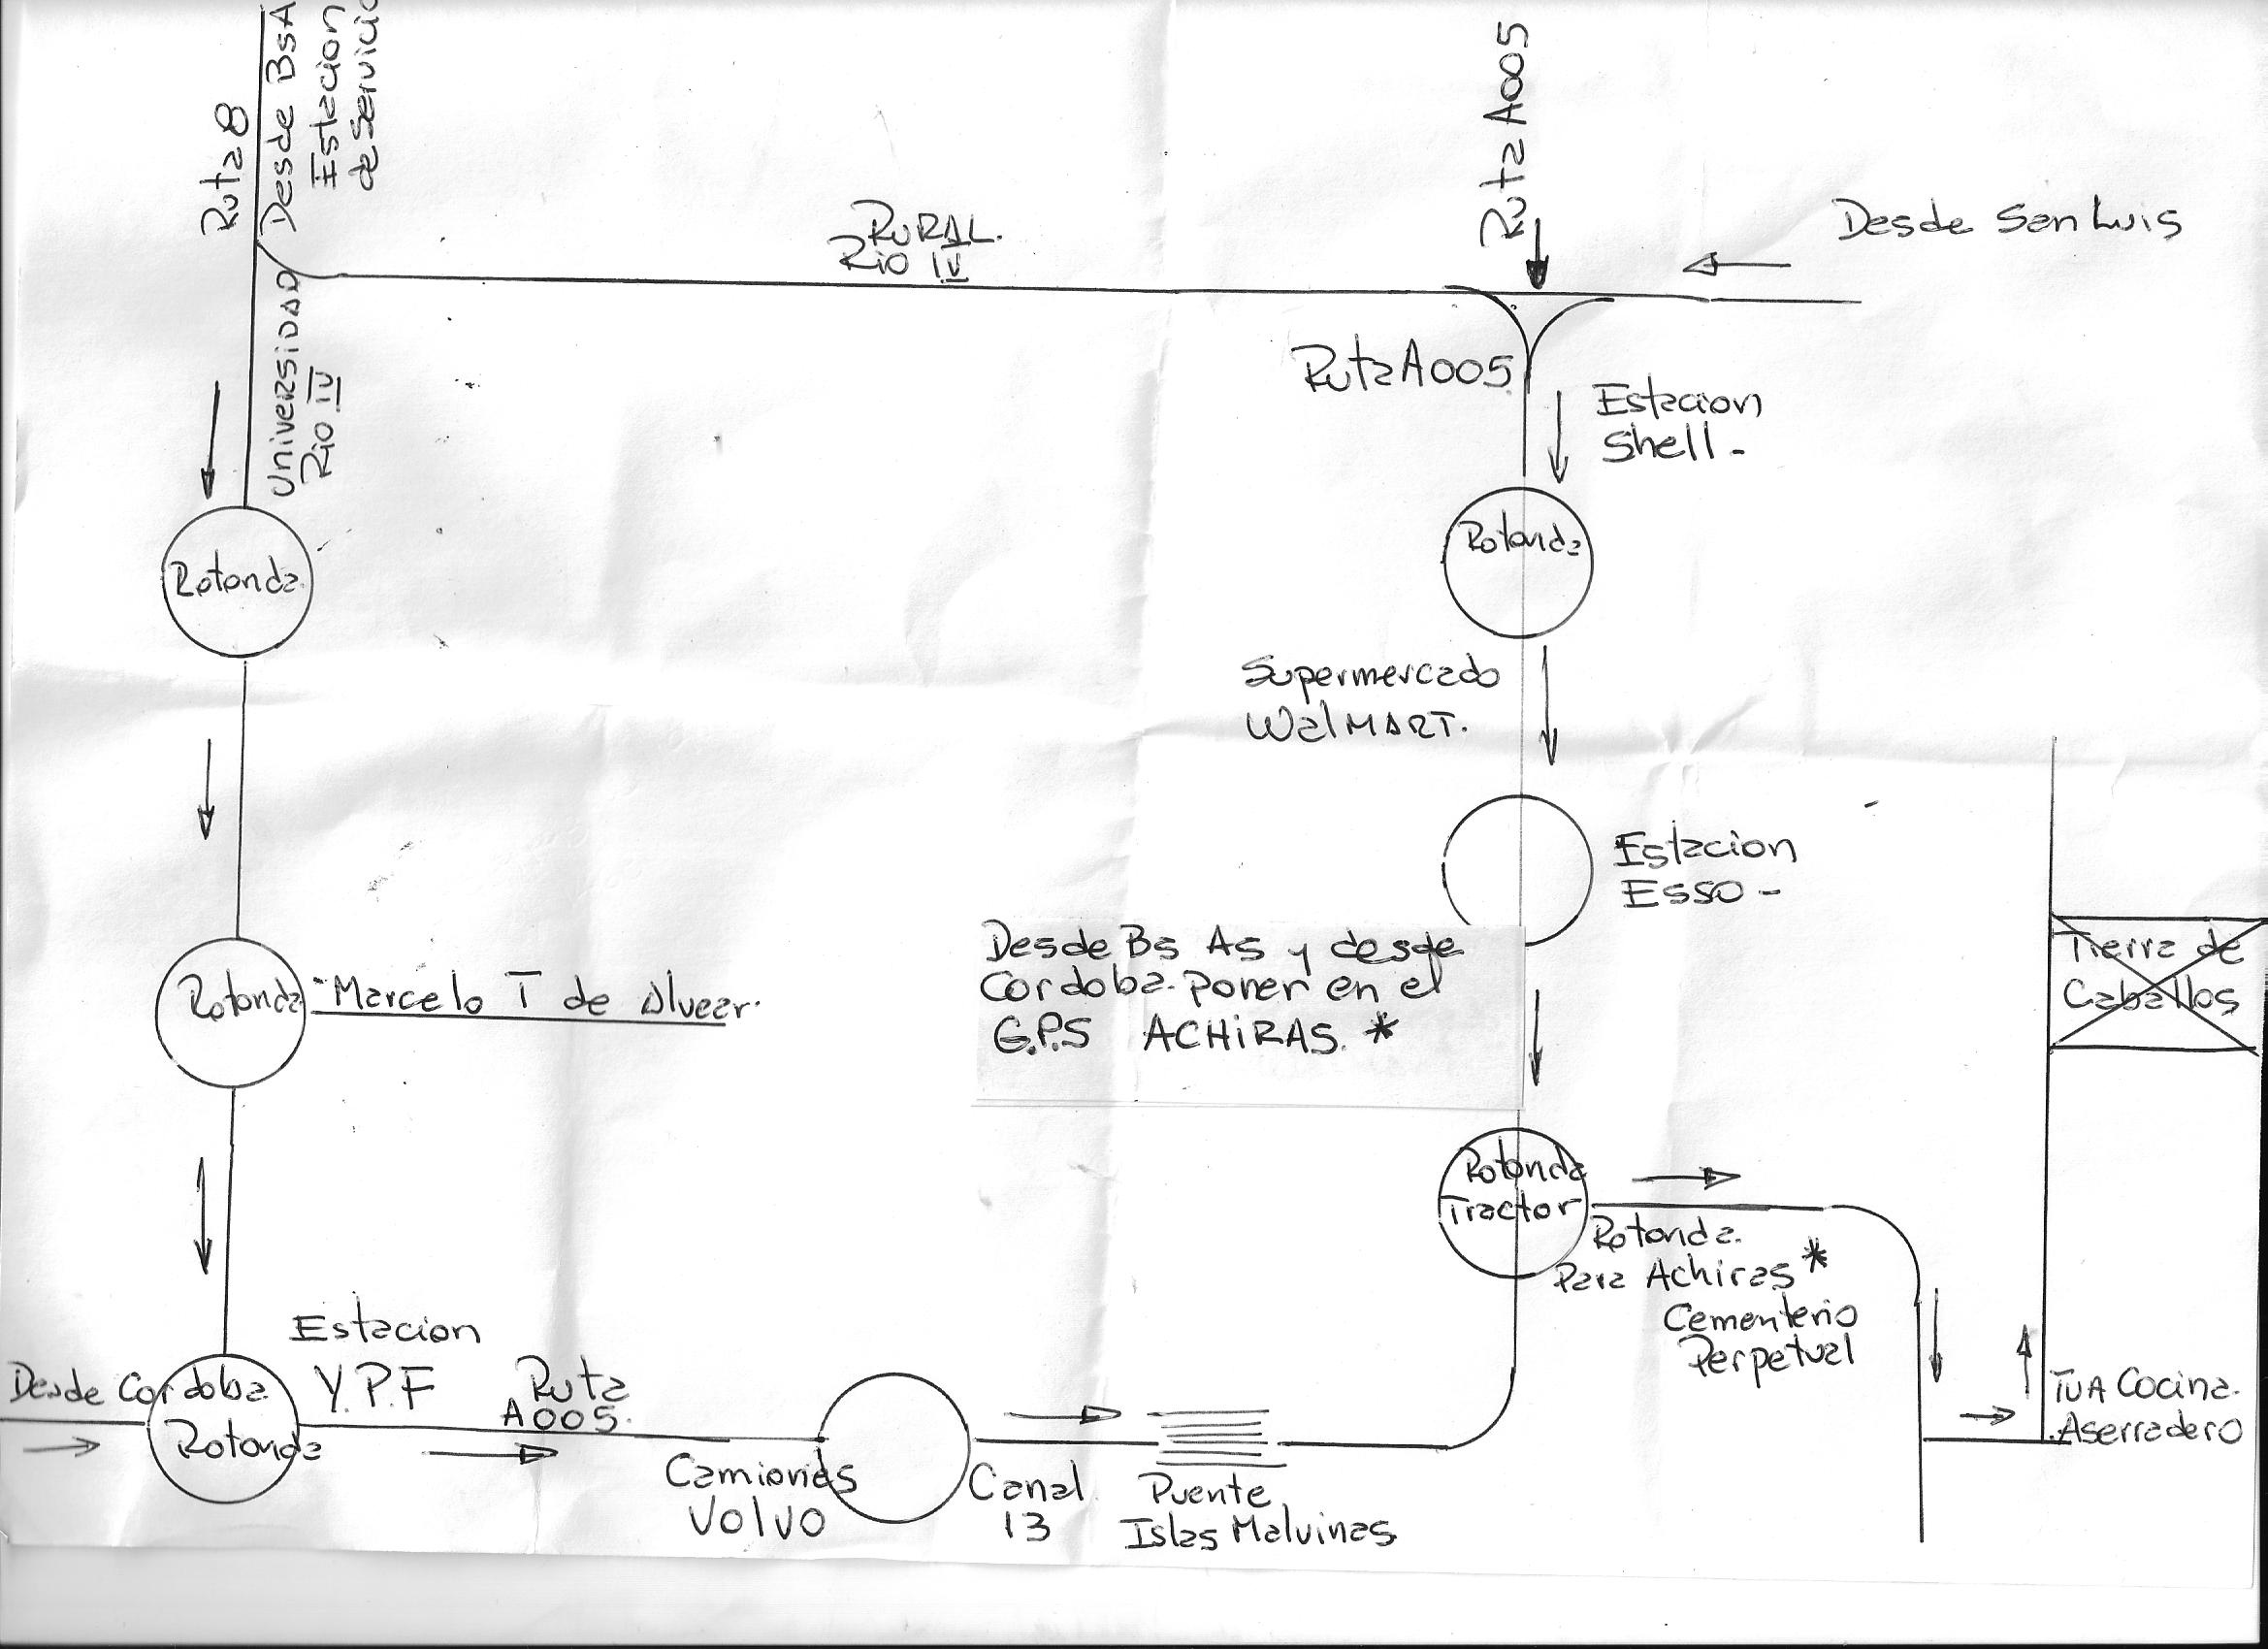 Ruta 8
Desde BsA
Estacion
de Servicio
Universidad
Rio IV
RURAL.
Rio IV
Ruta A005
Desde San Luis
Ruta A005
Estacion
Shell -
Rotonda
Rotonda
Supermercado
WalMART.
Estacion
Esso -
Desde Bs As y desde
Cordoba. Poner en el
G.P.S ACHIRAS. *
Tierra de
Caballos
Rotonda
Marcelo T de Alvear.
Rotonda
Tractor
Rotonda.
Para Achiras *
Cementerio
Perpetual
Estacion
Y.P.F
Desde Cordoba
Rotonda
Ruta
A005.
Camiones
Volvo
Canal
13
Puente
Islas Malvinas
TUA Cocina.
Aserradero